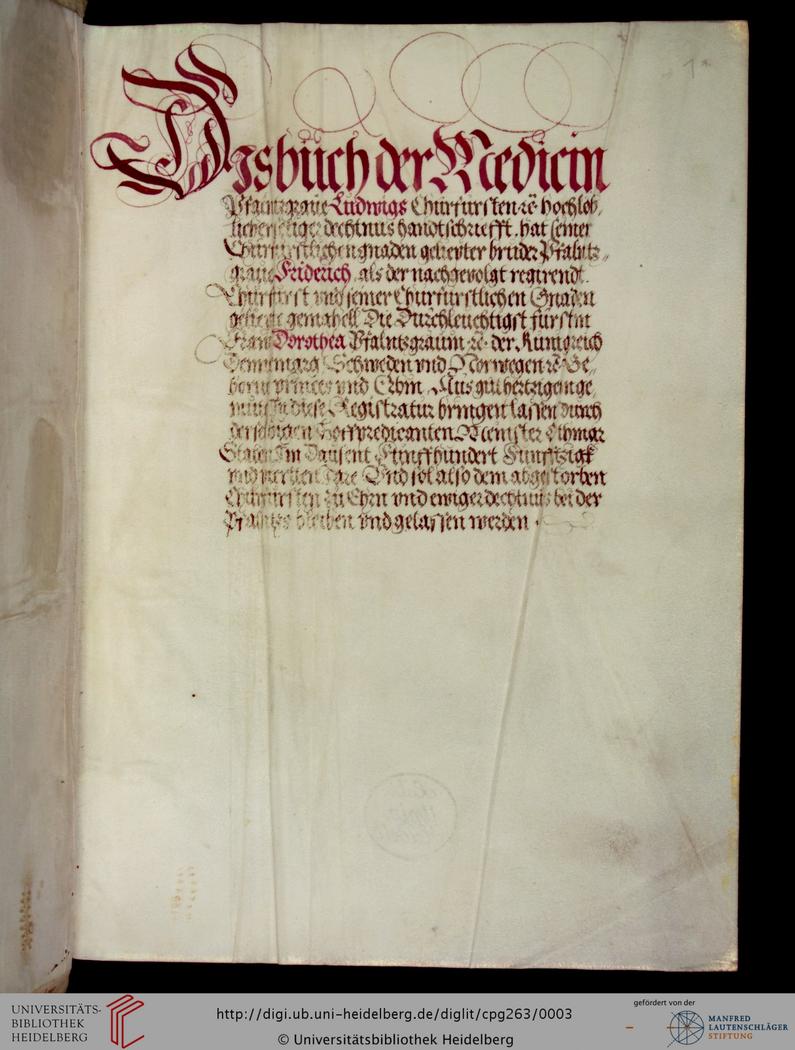 1a
Disbüch der Medicin
Pfaltzgraue Ludwigs Churfürsten ꝛc̃ hochlob,
licher seliger dechtnus handtschriefft. hat seiner
Churfürstlichen gnaden geliepter bruder Pfaltz-
graue Friderich als der nachgevolgt regirendt
Churfürst vnd seiner Churfürstlichen Gnaden
gemahell Die Durchleuchtigst fürstin
Fraw Dorothea Pfaltzgrauin ꝛc̃ der Kunigreich
Dennmarg Schweden vnd Norwegen ꝛc̃ Ge-
borne princes vnd Erbin Aus guthertzigem ge
diese Registratur bringen lassen durch
derselbigen Hoffpredicanten Meinster Othmar
Staben Im Dausent Funffhundert Funfftzigk
vnd vierten Jare Vnd sol also dem abgestorben
Churfürsten zu Ehrn vnd ewiger dechtnus bei der
Pfaltz bleiben vnd gelassen werden.
UNIVERSITÄTS-
BIBLIOTHEK
HEIDELBERG
http://digi.ub.uni-heidelberg.de/diglit/cpg263/0003
© Universitätsbibliothek Heidelberg
gefördert von der
MANFRED
LAUTENSCHLÄGER
STIFTUNG